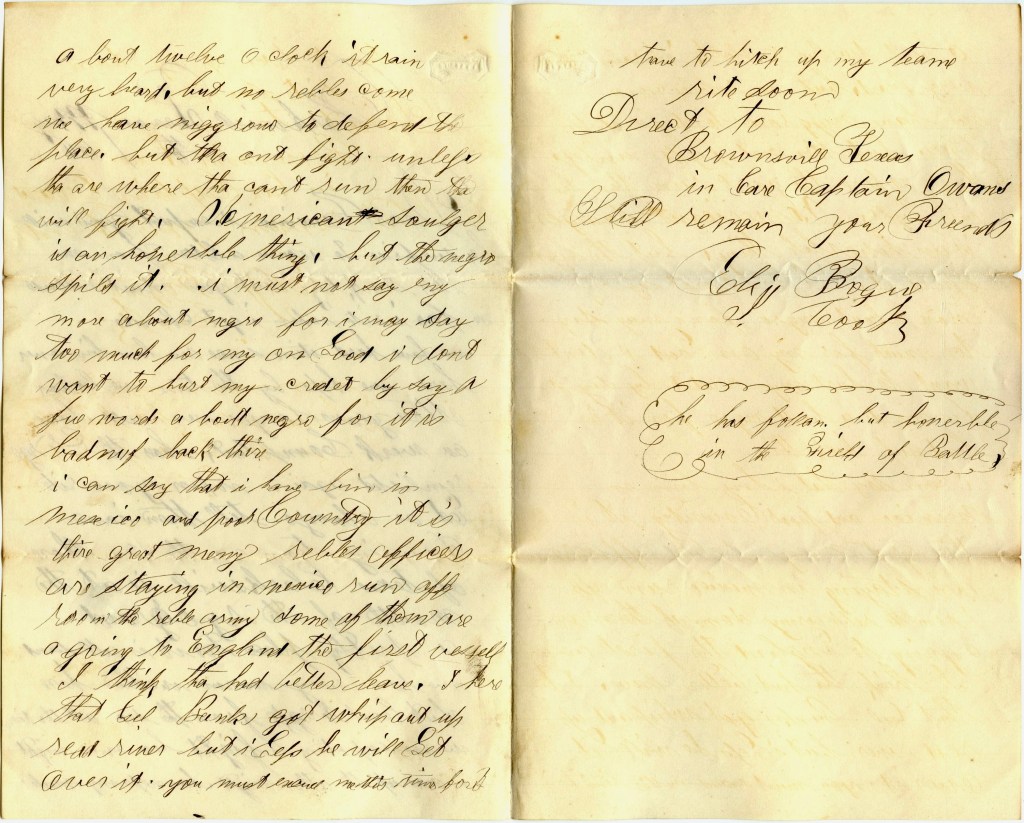 a bout twelve O Colk it rain
very heard, but no rebles come
we have niggrows to defend the
place. but tha ont fight. unless
tha are where tha cant run then tha
will fight. Americant soulger
is an honerble thing, but the negro
spils it. i must not say eny
more about negro for i may say
too much for my on Good i dont
want to hurt my credet by say a
fue words a boutt negro for it is
badnuf back thire
i can say that i have bin in
mexico and poor Country it is
thire great meny rebles officers
are staying in mexico run off
room the reble army some of them are
a going to England the first vessels
I think tha had better leave. I here
that Banks got whip out up
read river but i Gess he will Get
over it. you must excuse me this time for i
have to hitch up my teame
rite soon
Direct to
Brownsvill Texas
in Care Captain Owans
Still remain your Friends
Elij Bogue
Cook
he has follan but honerble
in the Field of Battle,